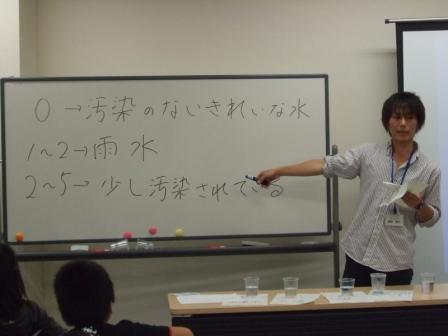 0→汚染のないきれいな水
1~2→雨水
2~5→少し汚染されている